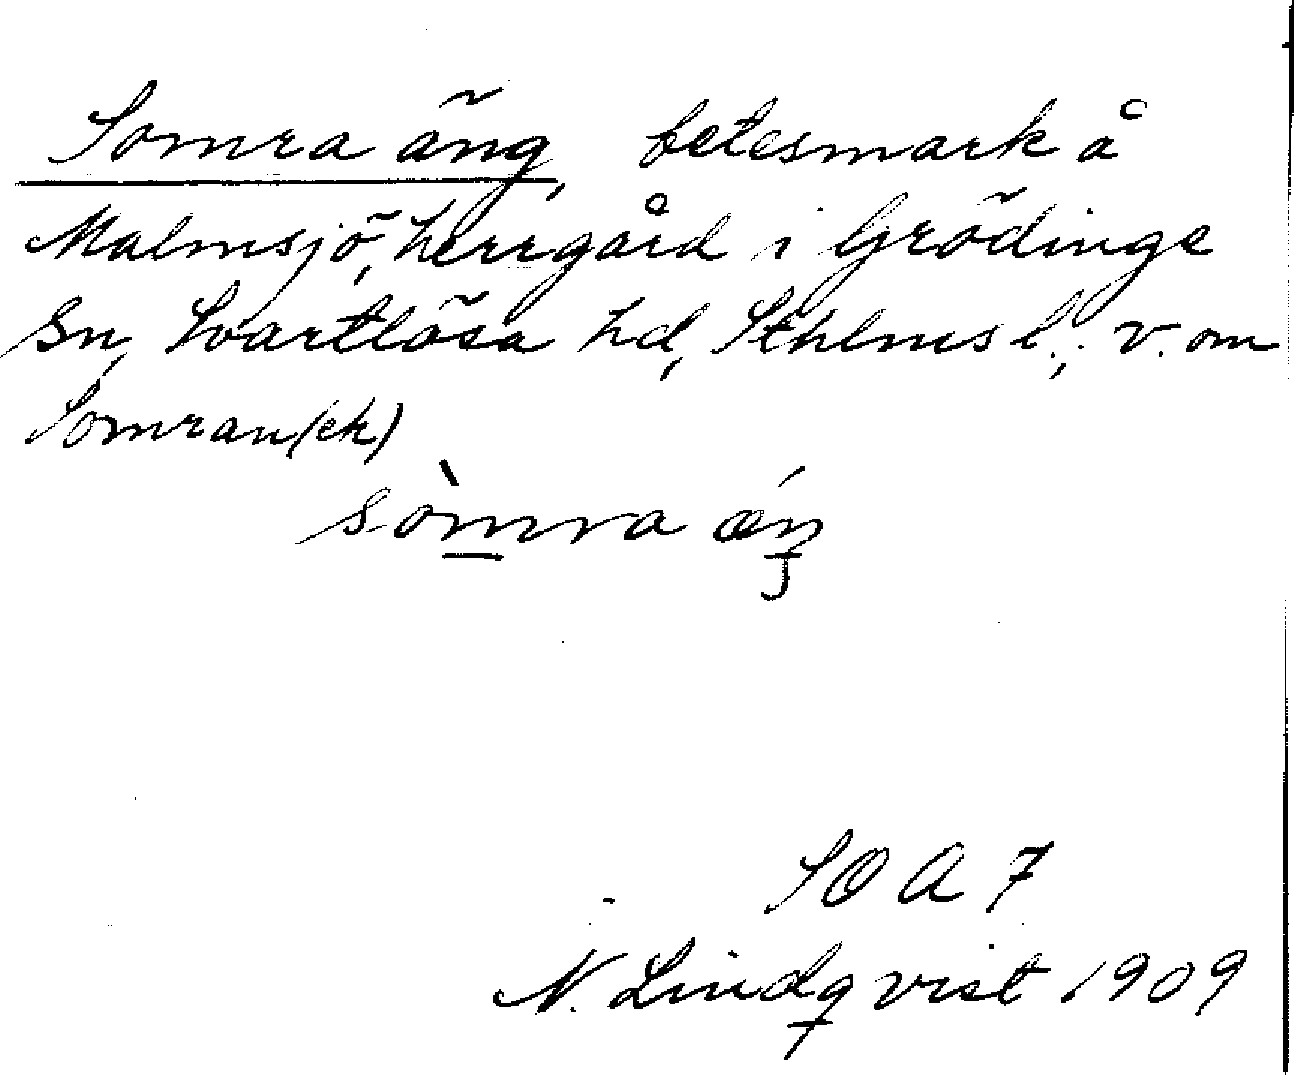 Somra äng, betesmark å
Malmsjö, herrgård i Grödinge
sn, Svartlösa hd, Sthlms l.; v. om
Somran (ek)
sòmra æ´ŋ
SOA 7
N. Lindqvist 1909